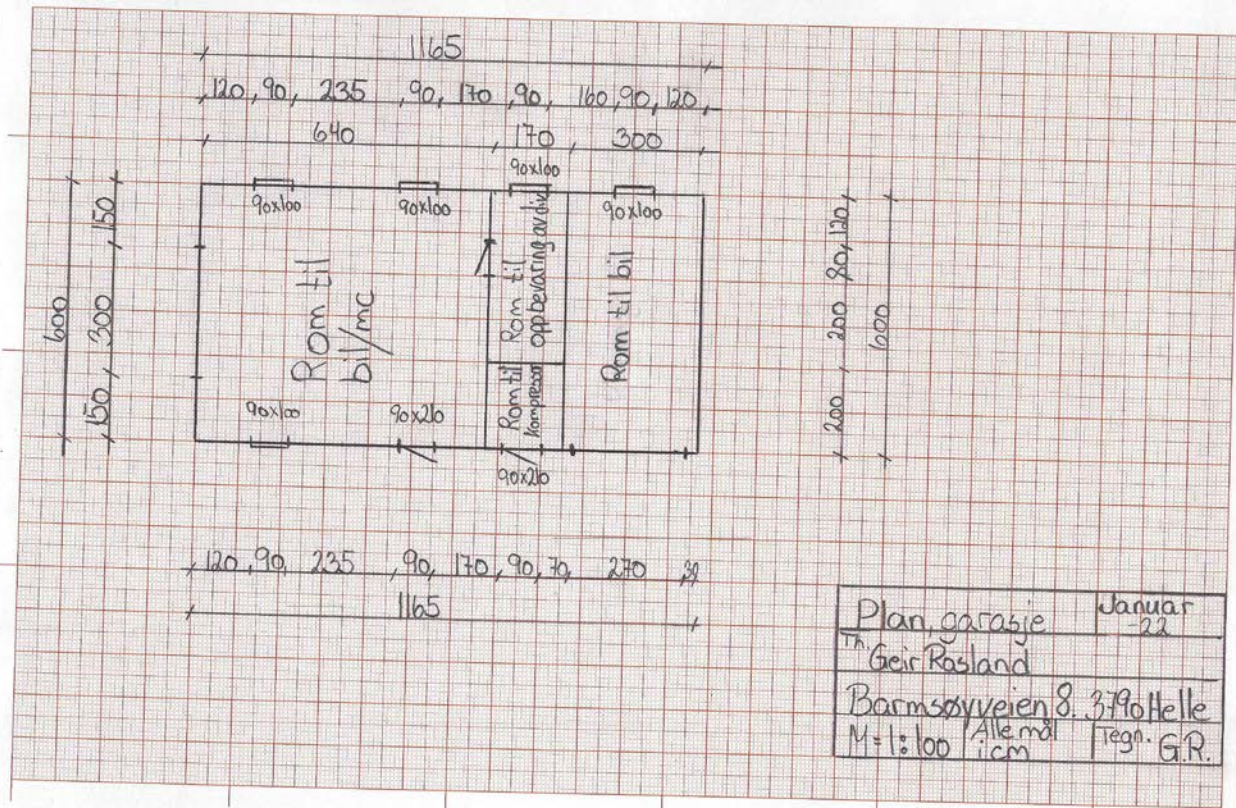 1165
120, 90, 235, 90, 170, 90, 160, 90, 120,
640, 170, 300
90x100
90x100 90x100 90x100
600
150, 300, 150
Rom til
bil/mc
Rom til
oppbevaring av div
Rom til bil
Rom til
kompressor
90x100 90x210
90x210
200, 200 80, 120,
600
120, 90, 235, 90, 170, 90, 70, 270
1165
Plan, garasje
Januar
-22
Th. Geir Rosland
Barmsøyveien 8. 3790 Helle
M=1:100
Alle mål
i cm
Tegn. G.R.